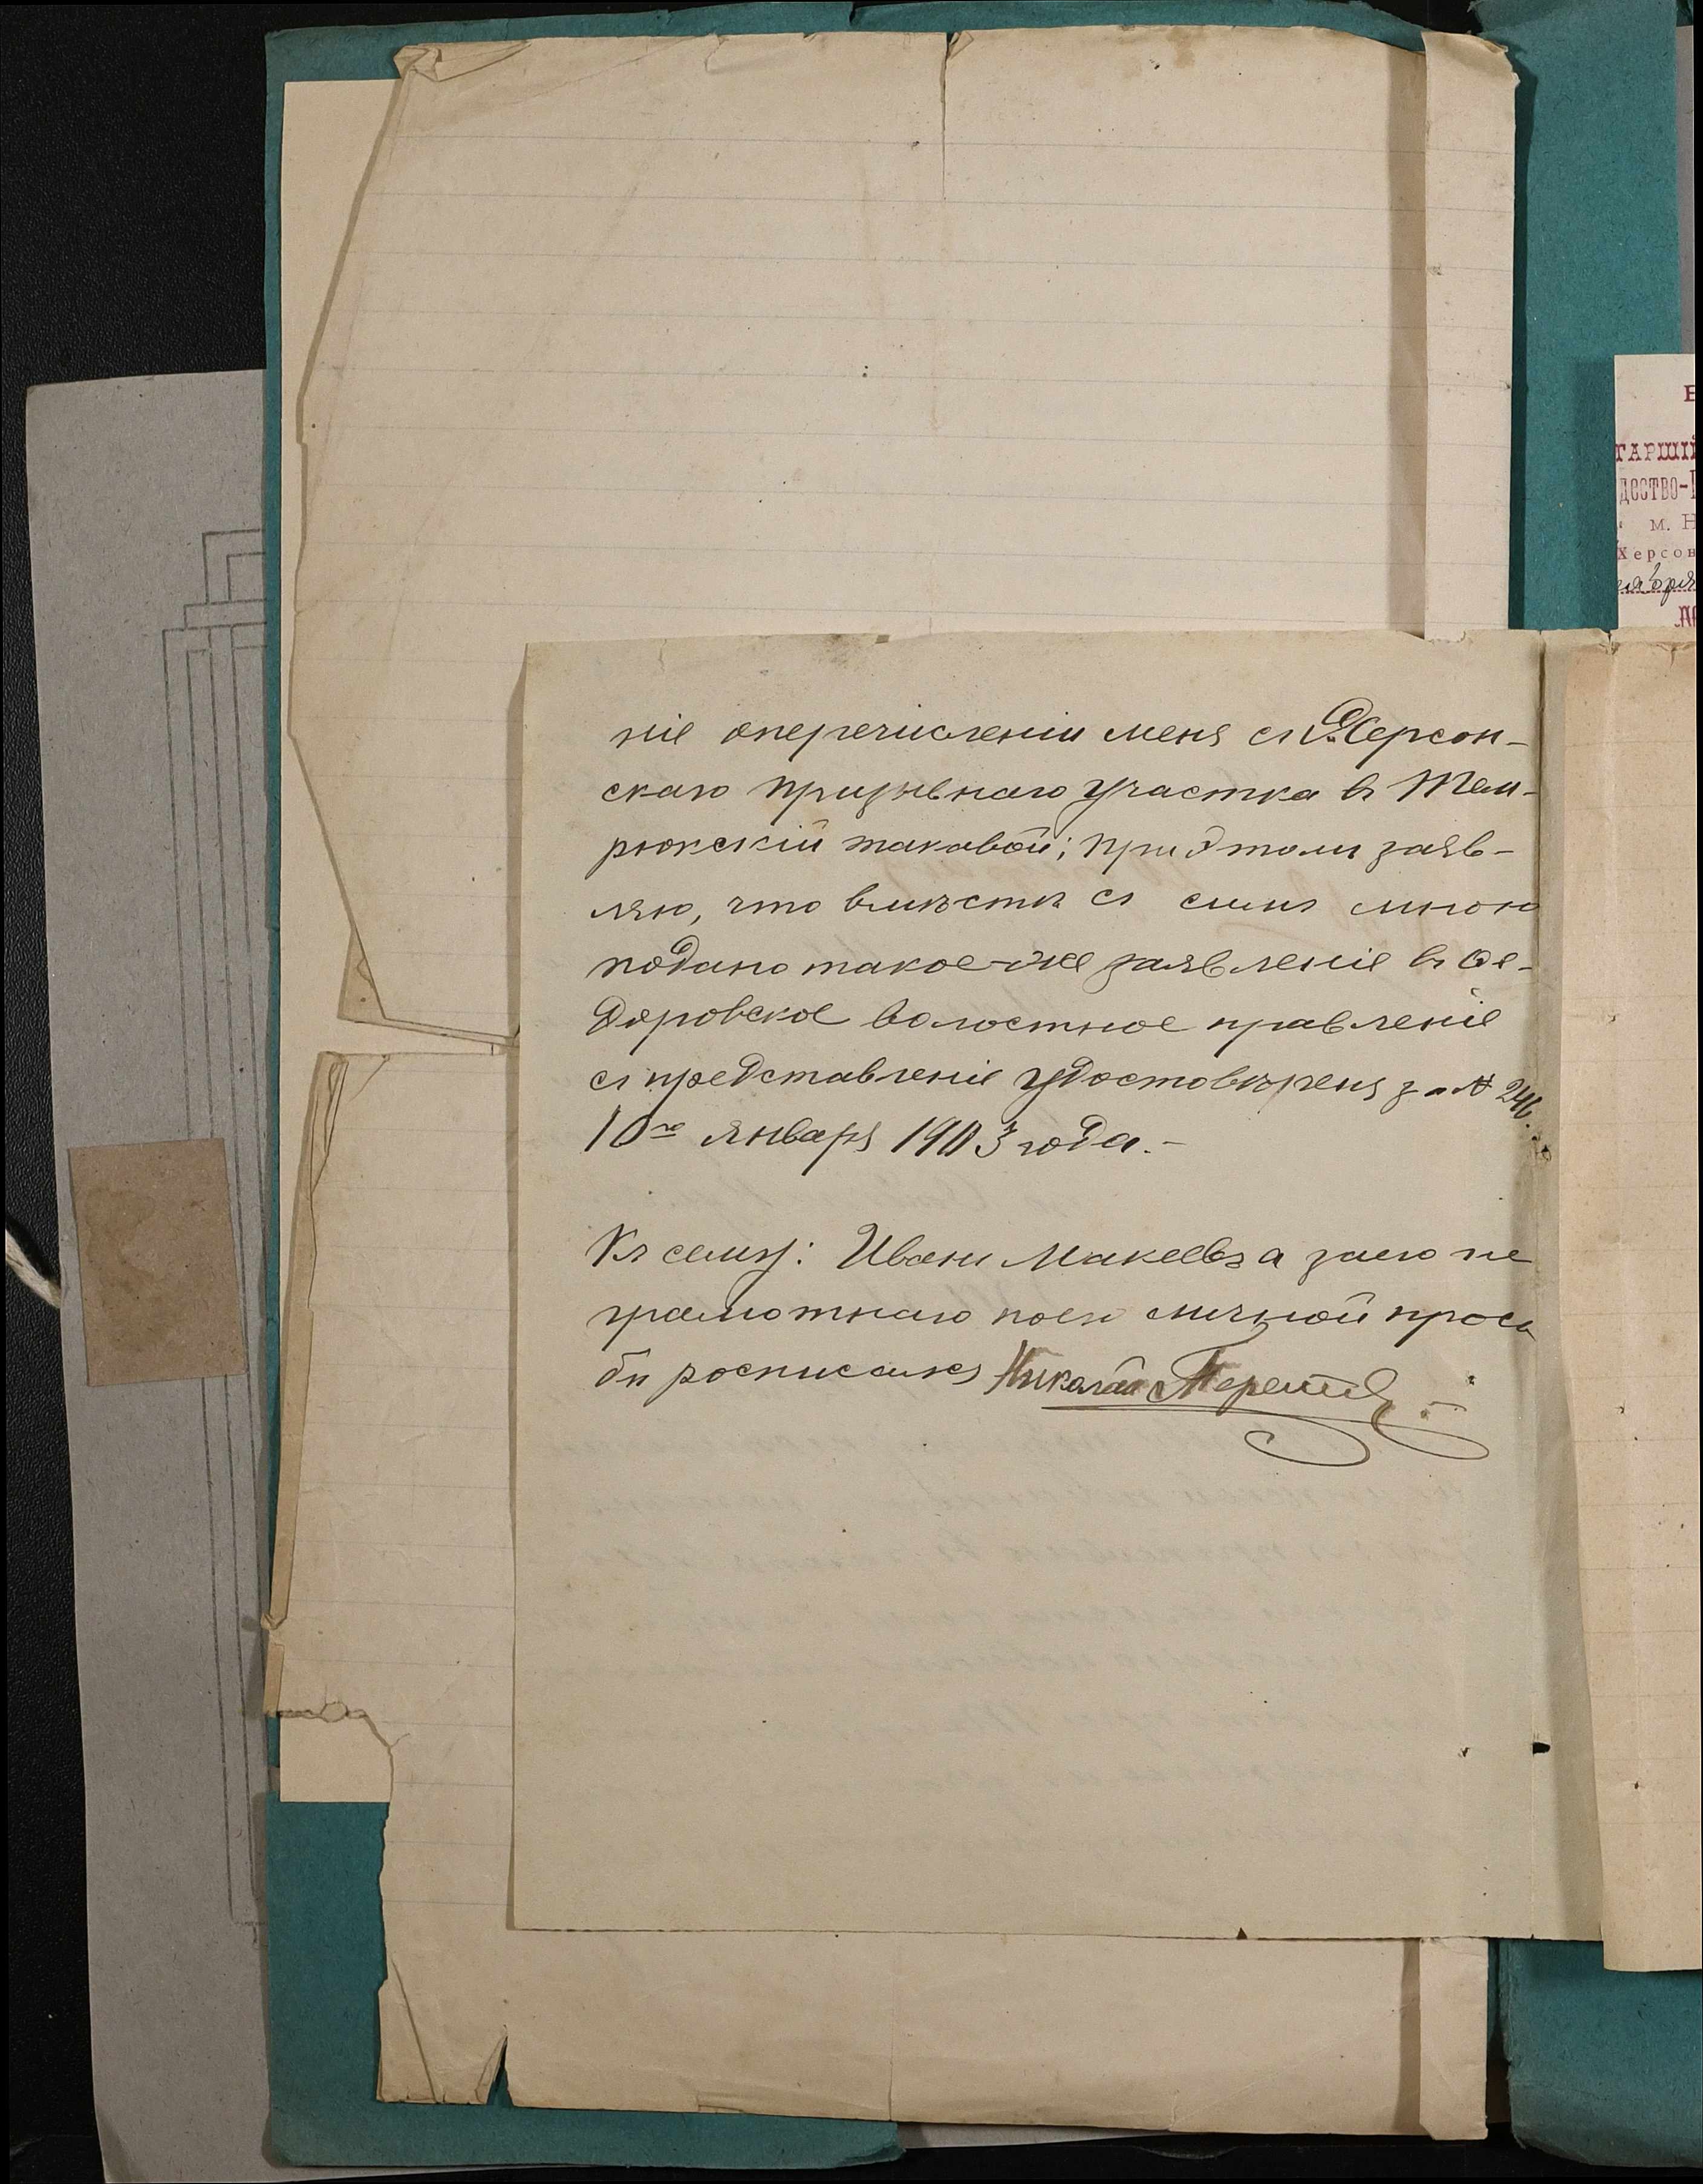 ніе оперечисленіи меня съ Херсон-
скаго призывнаго участка въ Тем-
рюкскій таковой; при этомъ заяв-
ляю, что вмѣстѣ съ симъ мною
подано такое-же заявленіе въ Ѳе-
доровское волостное правленіе
съ представленіе удостовѣренія за №
10го января 1903 года.-
Къ сему: Иванъ Макеевъ а заего не
грамотнаго поего личной прось
бѣ росписался Николай
ТАРШІЙ
ДСТВО-
м. Н
Херсон